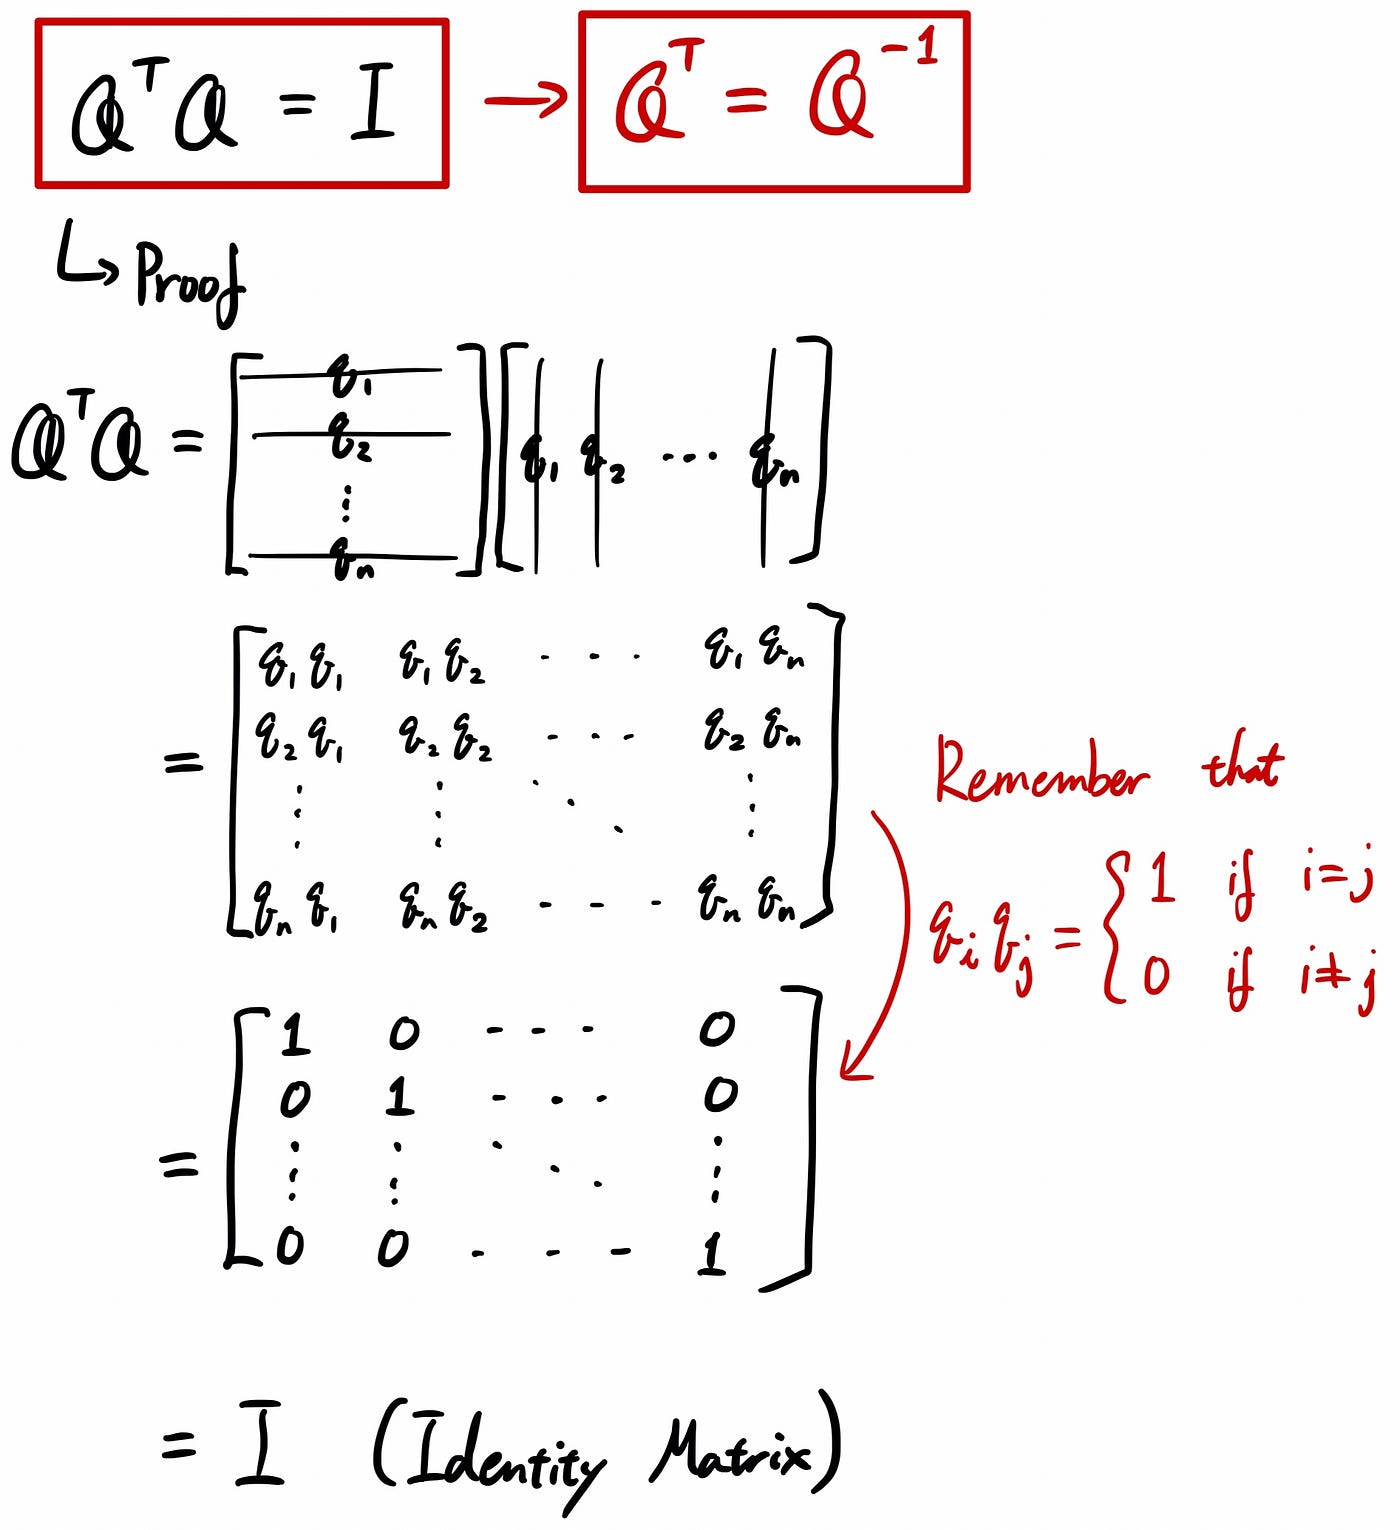 QᵀQ = I → Qᵀ = Q⁻¹
↳ Proof
QᵀQ = [ q₁ q₂ ⋮ qₙ ] [ q₁ q₂ ⋯ qₙ ]
= [ q₁q₁ q₁q₂ ⋯ q₁qₙ
q₂q₁ q₂q₂ ⋯ q₂qₙ
⋮ ⋮ ⋱ ⋮
qₙq₁ qₙq₂ ⋯ qₙqₙ ]
Remember that
qᵢqⱼ = { 1 if i=j
0 if i≠j
= [ 1 0 ⋯ 0
0 1 ⋯ 0
⋮ ⋮ ⋱ ⋮
0 0 ⋯ 1 ]
= I (Identity Matrix)